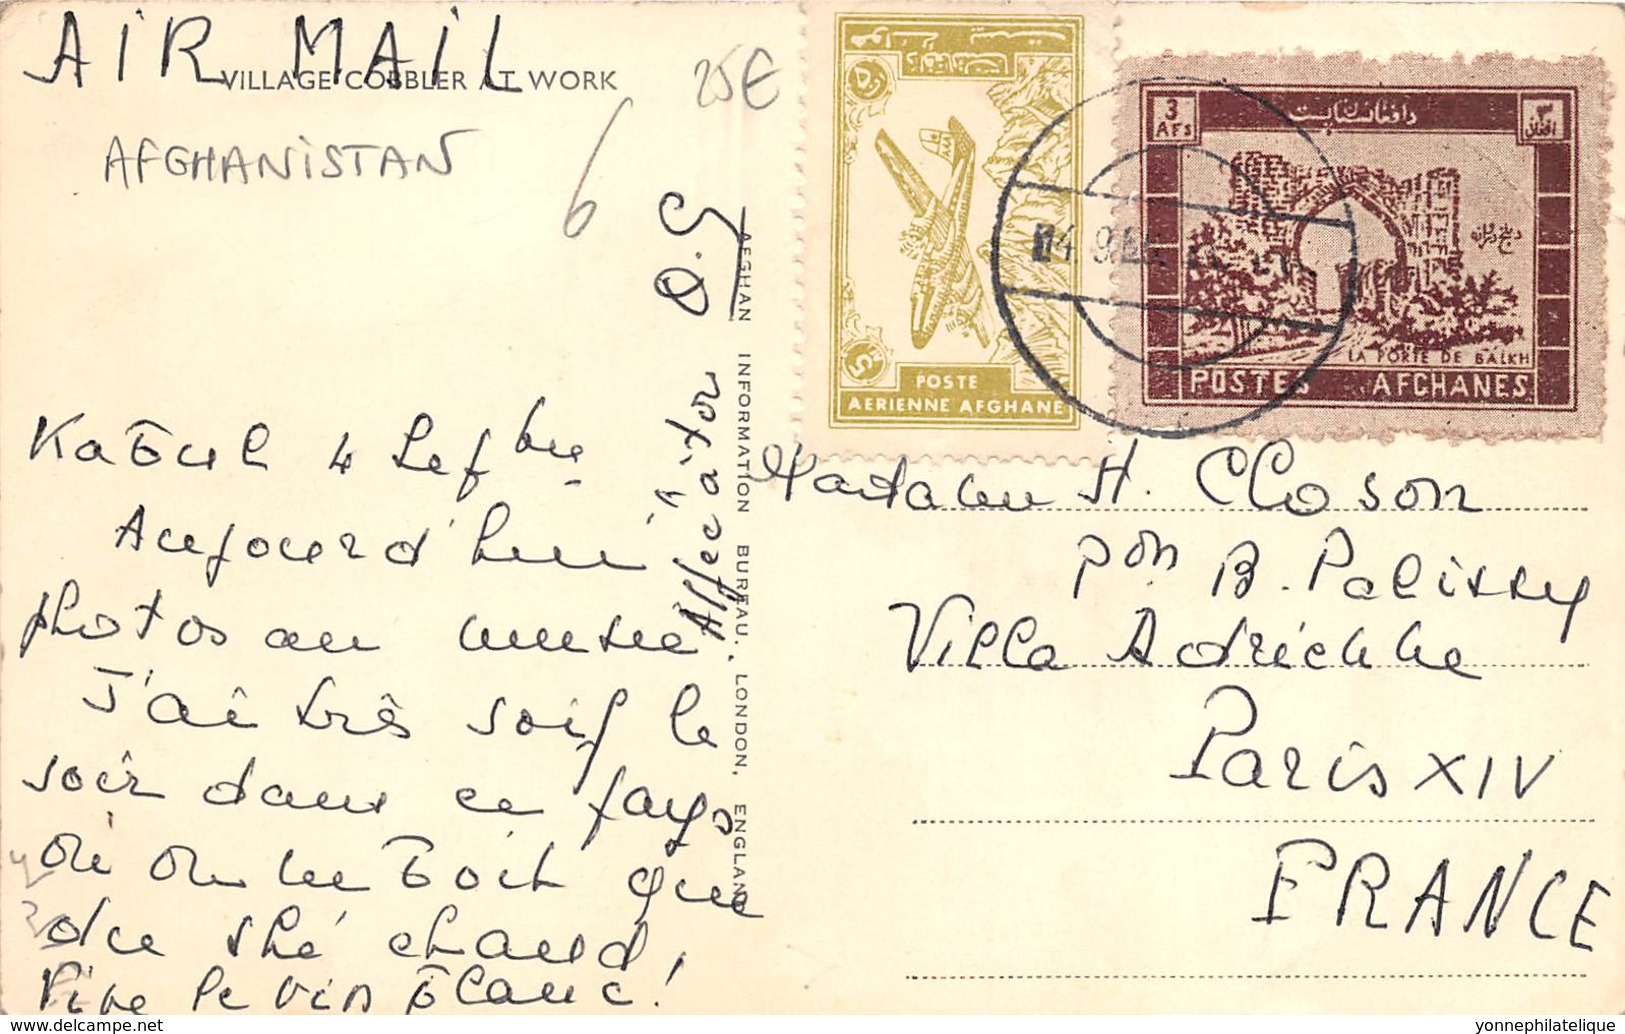 AIR MAIL
VILLAGE COBBLER AT WORK
AFGHANISTAN
25€
6
Kaboul 4 Septbre
Aujourd'hui
photos au musée
J'ai très soif le
soir dans ce pays
où on ne boit que
du thé chaud,
Vive le vin blanc!
Affec à toi
AFGHAN INFORMATION BUREAU, LONDON, ENGLAND
POSTE
AERIENNE AFGHANE
3
AFS
۳
افغانی
دافغانستان پست
LA PORTE DE BALKH
POSTES AFGHANES
Madame H. Closon
pon B. Palissy
Villa Adrienne
Paris XIV
FRANCE
yonnephilatelie@gmail.com